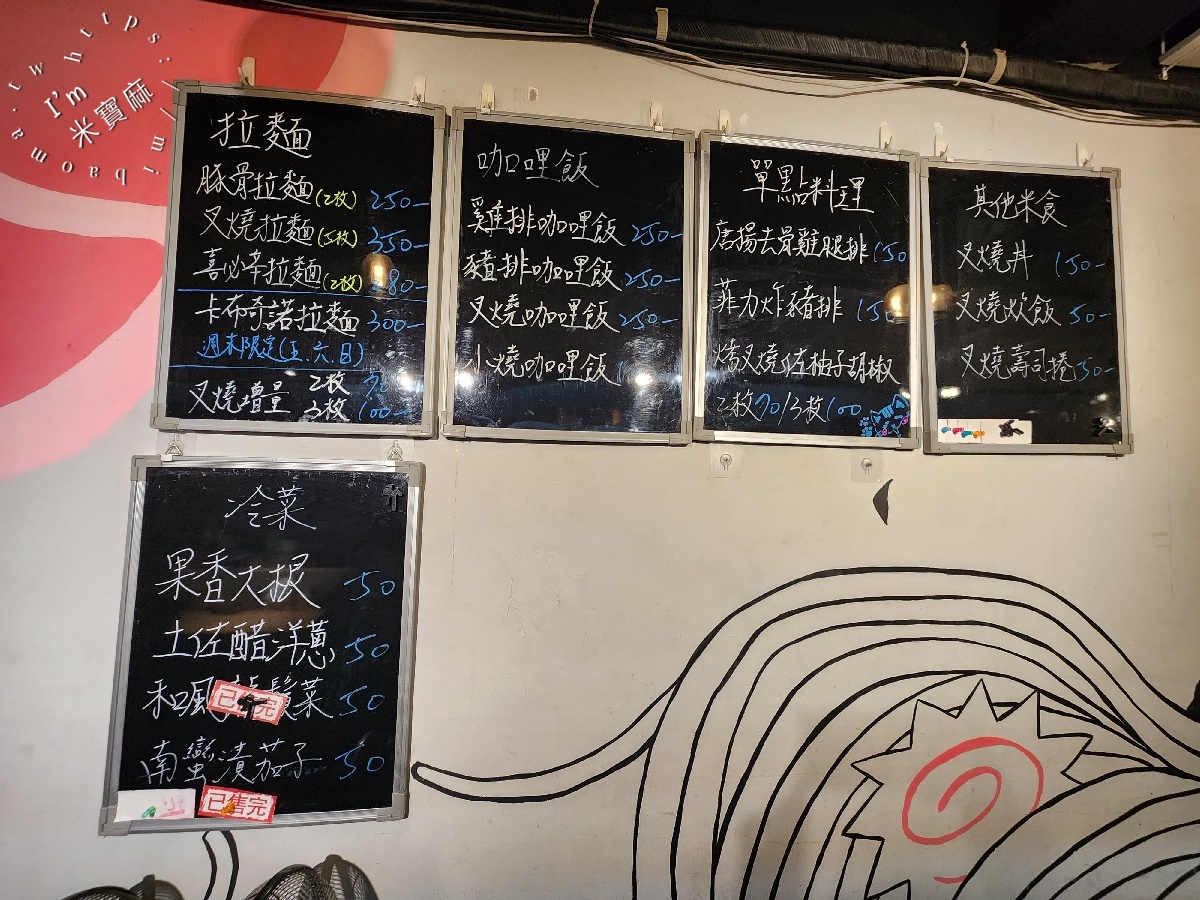 https://mibaoma.tw
I'm
米寶麻
拉麵
豚骨拉麵(2枚) 250-
叉燒拉麵(5枚) 350-
喜必辛拉麵(2枚) 280-
卡布奇諾拉麵 300-
週末限定(五.六.日)
叉燒增量 2枚
3枚 100-
咖哩飯
雞排咖哩飯 250-
豬排咖哩飯 250-
叉燒咖哩飯 250-
小燒咖哩飯
單點料理
唐揚去骨雞腿排 150
菲力炸豬排 150
燒叉燒佐柚子胡椒
2枚70/3枚100
其他米食
叉燒丼 150-
叉燒炊飯 50-
叉燒壽司捲 50-
冷菜
果香大根 50
土佐醋洋蔥 50
和風 髮菜 50
已 完
南蠻漬茄子 50
已售完